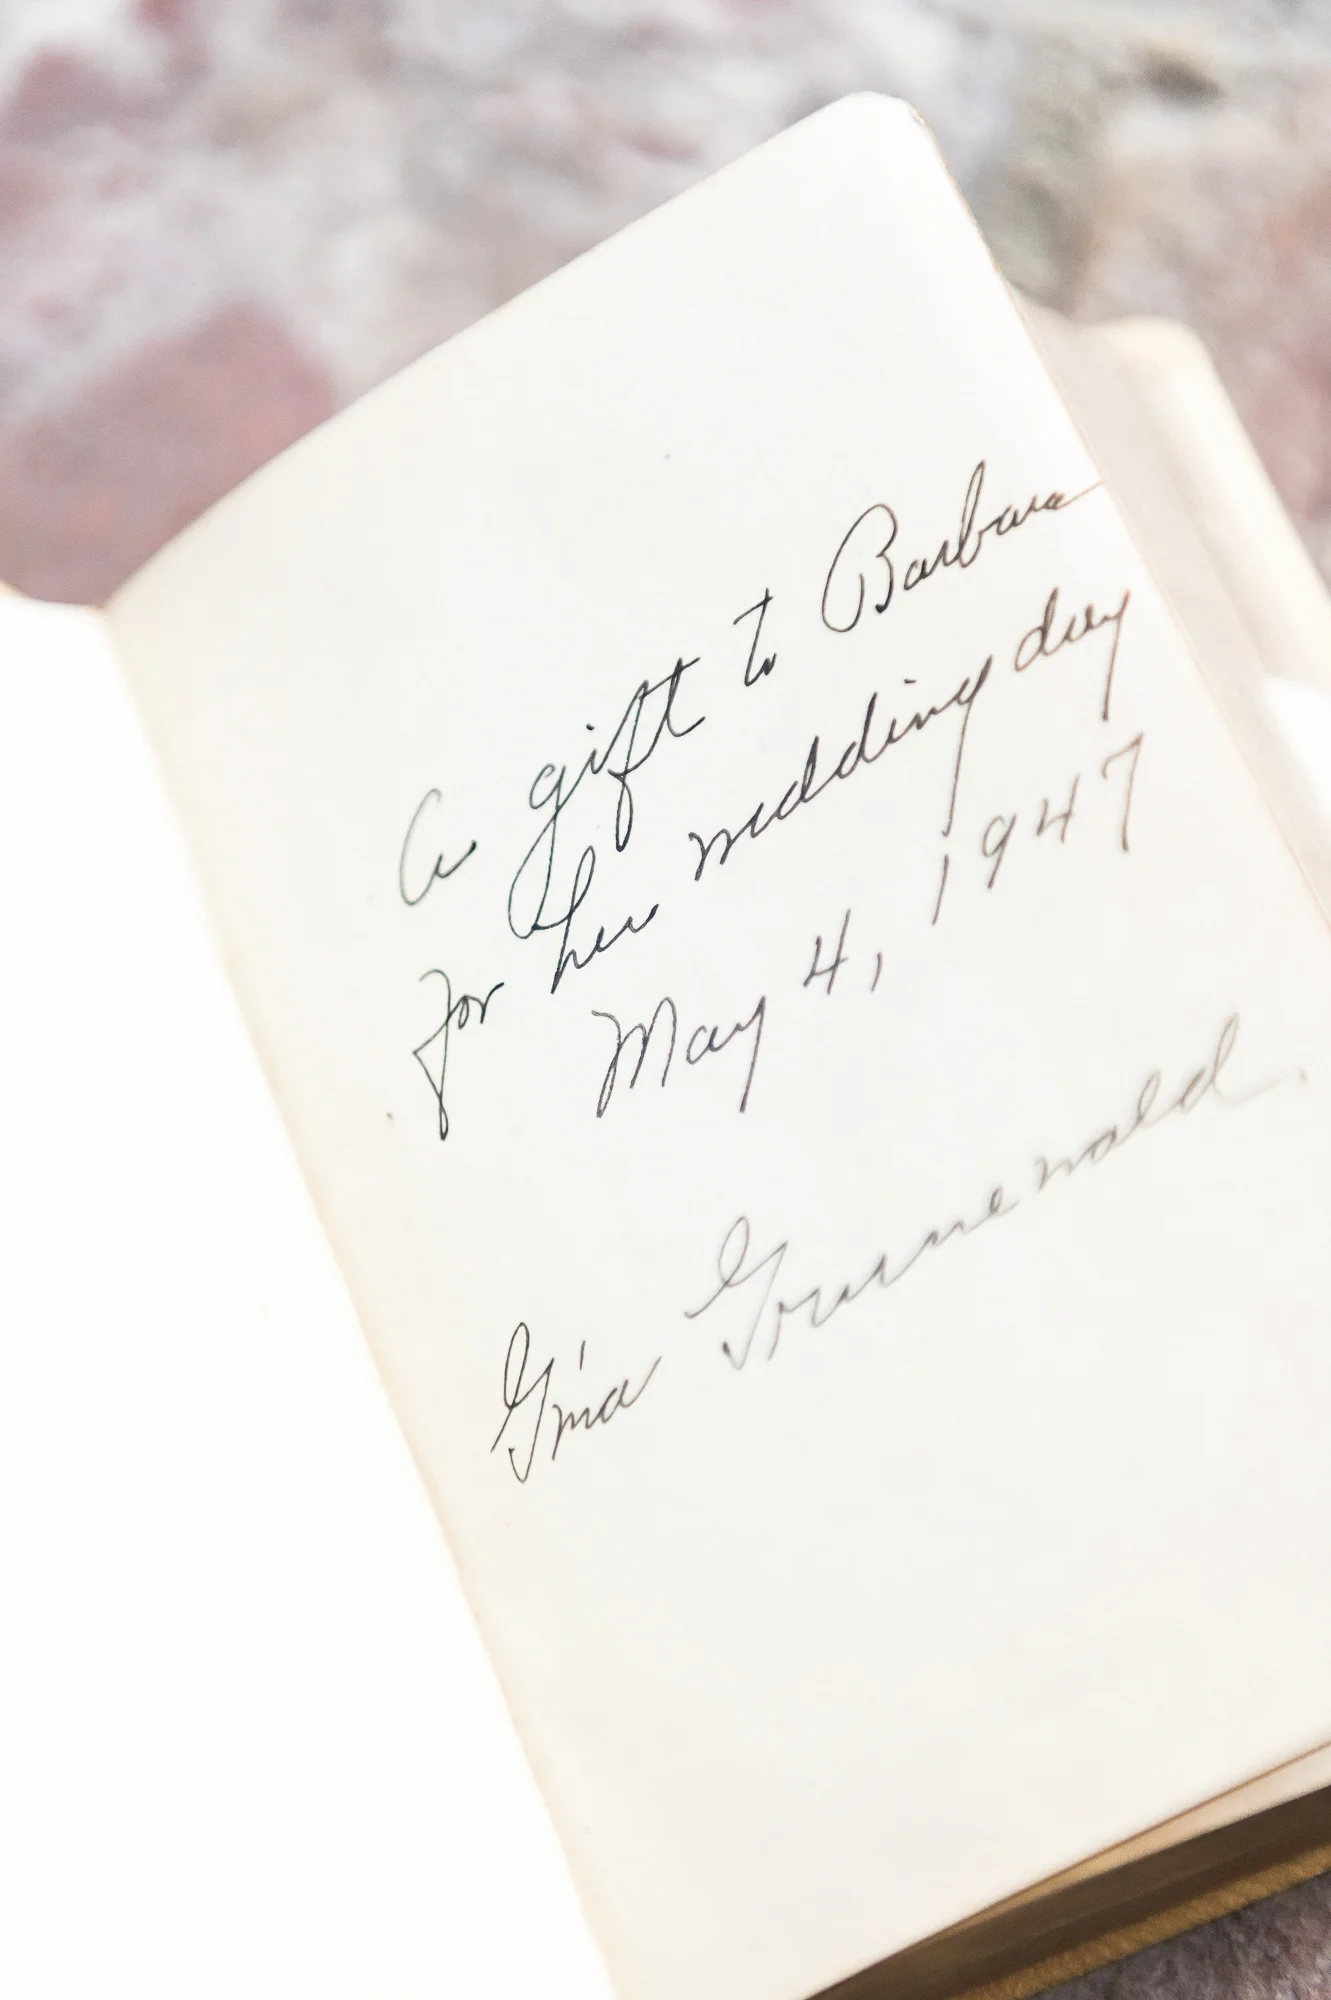 A gift to Barbara
for her wedding day
May 4, 1947
Gina Gruenewald